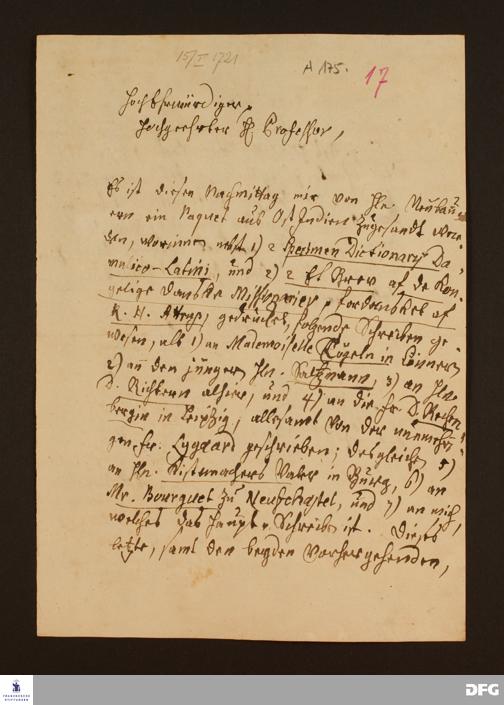 15/I 1721
A 175.
17
HochEhrwürdiger,
Hochgeehrter H Professor,
Es ist diesen Nachmittag mir von Hn. Neubau
ern ein Paquet aus OstIndien zugesandt wor
den, worinnen nebst 1) 2 Specimen Dictionary Da
mulico-Latini, und 2) 2 Et Brev af de Kon
gelige Danske Missionarier, fordansket af
gedrucket, folgende Schreiben ge
wesen, als 1) an Mademoiselle Kügeln in
2) an den jüngern Hn. Saltzmann, 3) an Hn.
D. Richtern alhier, und 4) an die Fr. D. Rechen
bergin in Leipzig; allesamt von der
gen. Fr. geschrieben; desgleichen 5)
an Hn. Kistmachers Vater in Burg, 6) an
Mr. Bourguet zu Neufchastel, und 7) an mich,
welches das Haupt-Schreiben ist. Dieses
letzte, samt den beyden vorhergehenden,
FRANCKESCHE
STIFTUNGEN
DFG